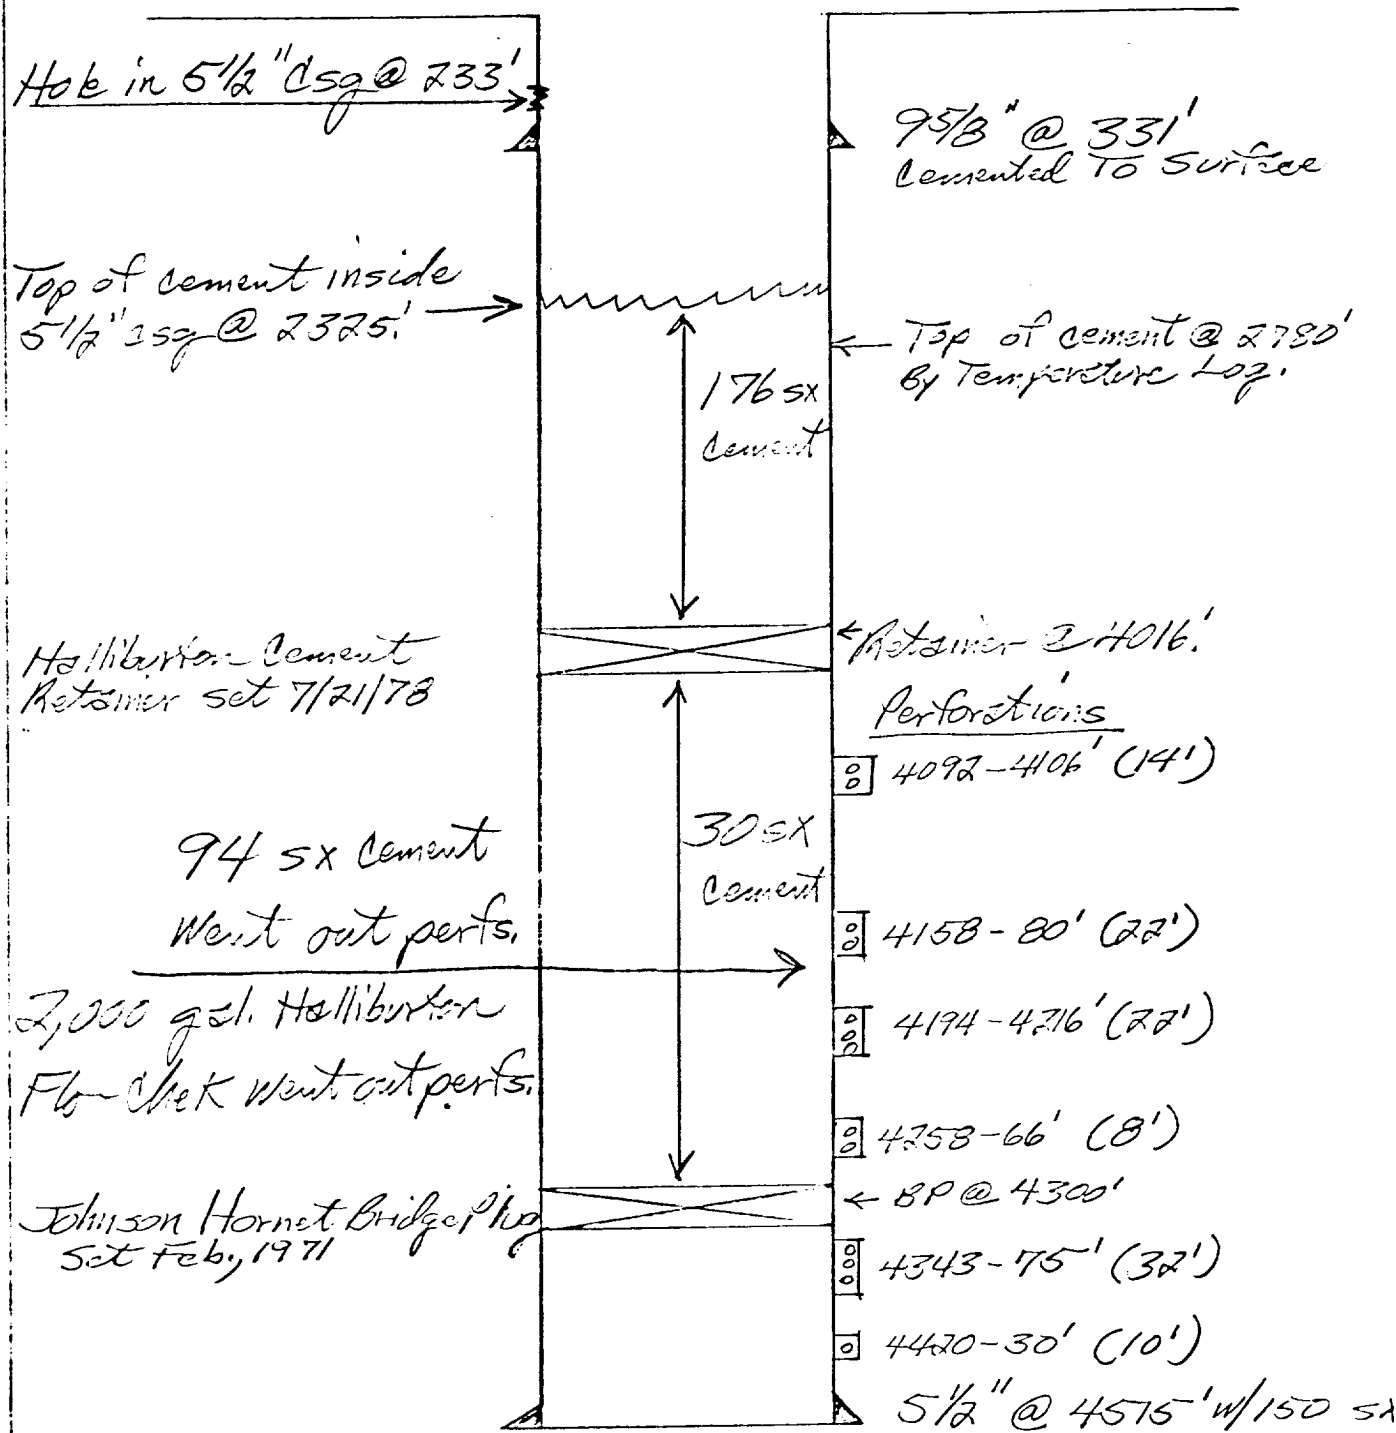 Hole in 5 1/2" Csg @ 233'
9 5/8" @ 331'
Cemented To Surface
Top of cement inside
5 1/2" csg @ 2325'
Top of cement @ 2780'
By Temperature Log.
176 sx
Cement
Halliburton Cement
Retainer set 7/21/78
Retainer @ 4016'
Perforations
4092-4106' (14')
94 sx Cement
Went out perfs.
30 sx
Cement
4158-80' (22')
2,000 gal. Halliburton
Flo-Chek Went out perfs.
4194-4216' (22')
4258-66' (8')
BP @ 4300'
Johnson Hornet Bridge Plug
Set Feb., 1971
4343-75' (32')
4420-30' (10')
5 1/2" @ 4575' w/150 sx